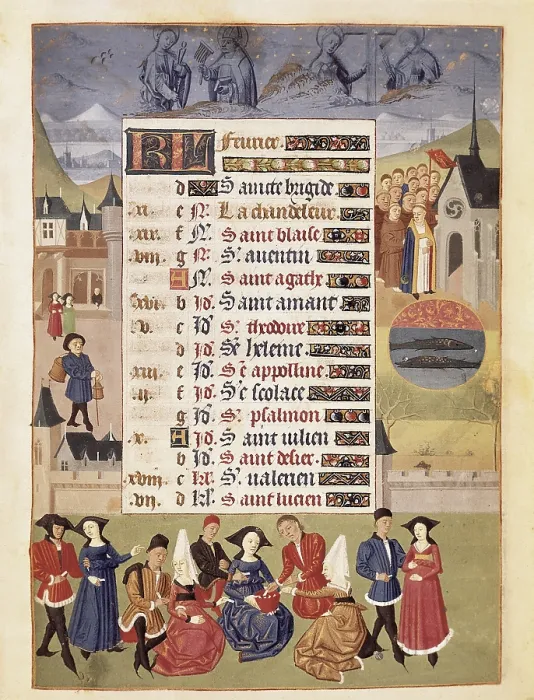 KL Feurier.
d Saincte brigide
.xi. e N. La chandeleur.
.xix. f N. Saint blaise
.viij. g N. St. auentin
A N. Saint agathe
.xvi. b Id. Saint amant
.v. c Id. St. theodore
d Id. Ste heleine.
.xiij. e Id. Ste appoline.
.ij. f Id. Ste scolace
g Id. St. psalmon
.x. A Id. Saint iulien
b Id. Saint desier.
.xviij. c kl. St. ualerien
.vij. d kl. Saint lucien